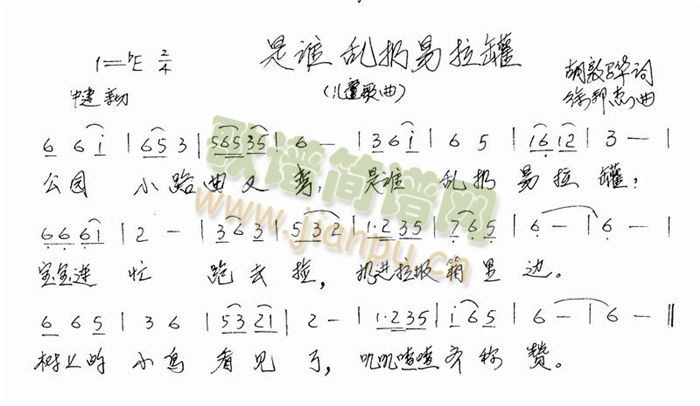 是谁乱扔易拉罐
1=♭E 2/4
(儿童歌曲)
胡敦骅词
曲
6 6 i | 6 5 3 | 5 6 5 3 5 | 6 - | 3 6 i | 6 5 | 1 6 1 2 | 3 - |
公园 小路曲又弯, 是谁 乱扔 易拉罐,
6 6 6 1 | 2 - | 3 6 3 | 5 3 2 | 1·2 3 5 | 7 6 5 | 6 - | 6 - |
宝宝连忙 跑去捡, 扔进垃圾箱里边。
6 6 5 | 3 6 | 5 3 2 1 | 2 - | 1·2 3 5 | i 6 5 | 6 - | 6 - ‖
树上的小鸟看见了, 叽叽喳喳齐称赞。
歌谱简谱网
www.jianpu.cn